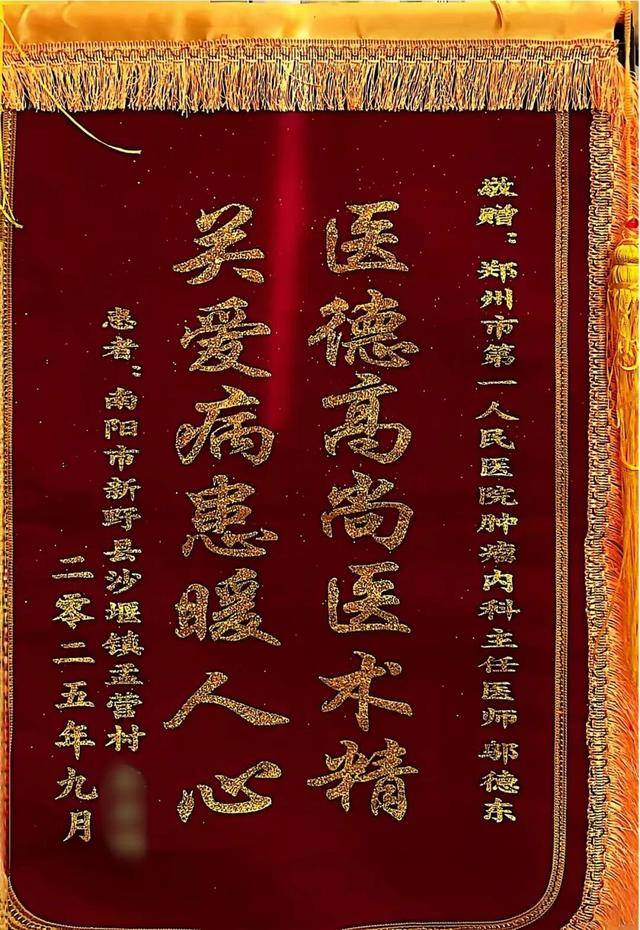 敬赠：郑州市第一人民医院肿瘤内科主任医师鄢德东
医德高尚医术精
关爱病患暖人心
患者：南阳市新野县沙堰镇孟营村
二零二五年九月